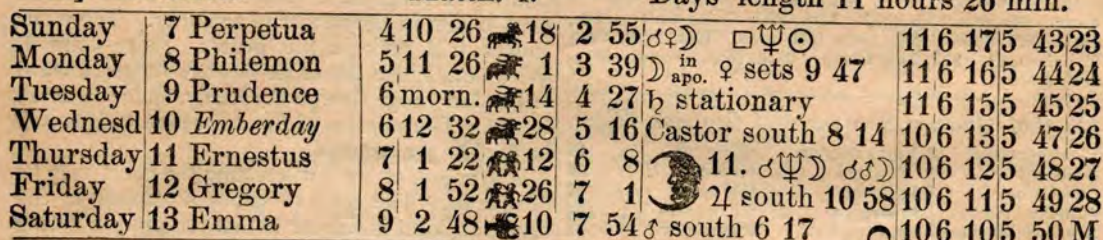 Days' length 11 hours 26 min.
Sunday 7 Perpetua 4 10 26 18 2 55 ☌♀☽ □♆☉ 11 6 17 5 43 23
Monday 8 Philemon 5 11 26 1 3 39 ☽ in apo. ♀ sets 9 47 11 6 16 5 44 24
Tuesday 9 Prudence 6 morn. 14 4 27 ♄ stationary 11 6 15 5 45 25
Wednesd 10 Emberday 6 12 32 28 5 16 Castor south 8 14 10 6 13 5 47 26
Thursday 11 Ernestus 7 1 22 12 6 8 11. ☌♆☽ ☌♂☽ 10 6 12 5 48 27
Friday 12 Gregory 8 1 52 26 7 1 ♃ south 10 58 10 6 11 5 49 28
Saturday 13 Emma 9 2 48 10 7 54 ♂ south 6 17 10 6 10 5 50 M